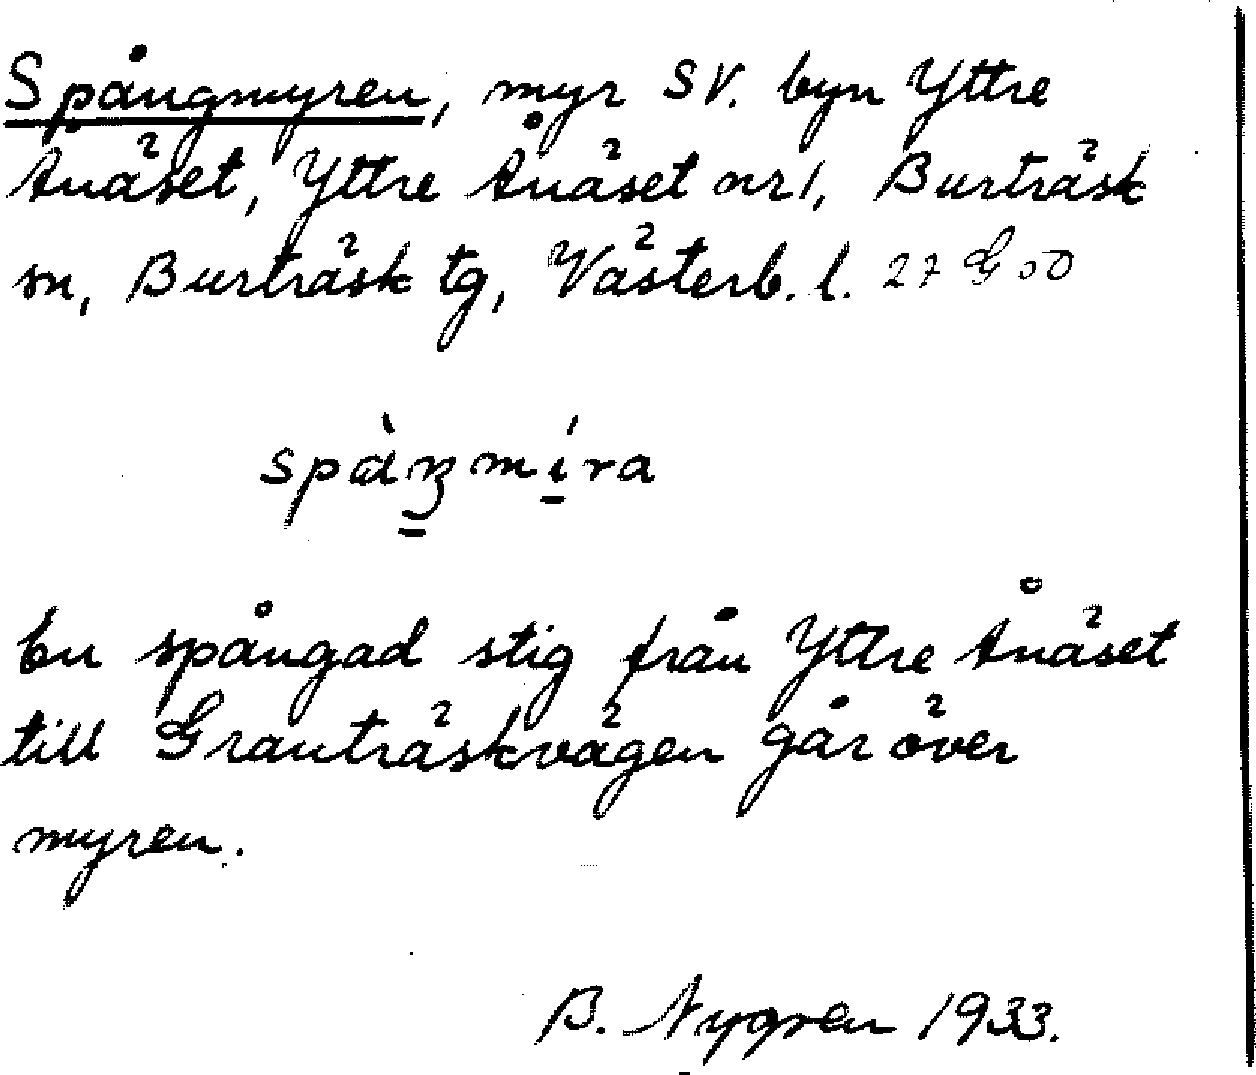 Spångmyren, myr SV. byn Yttre
Ånäset, Yttre Ånäset nr 1, Burträsk
sn, Burträsk tg, Västerb. l. 27 G 50
En spångad stig från Yttre Ånäset
till Granträskvägen går över
myren.
B. Nygren 1933.